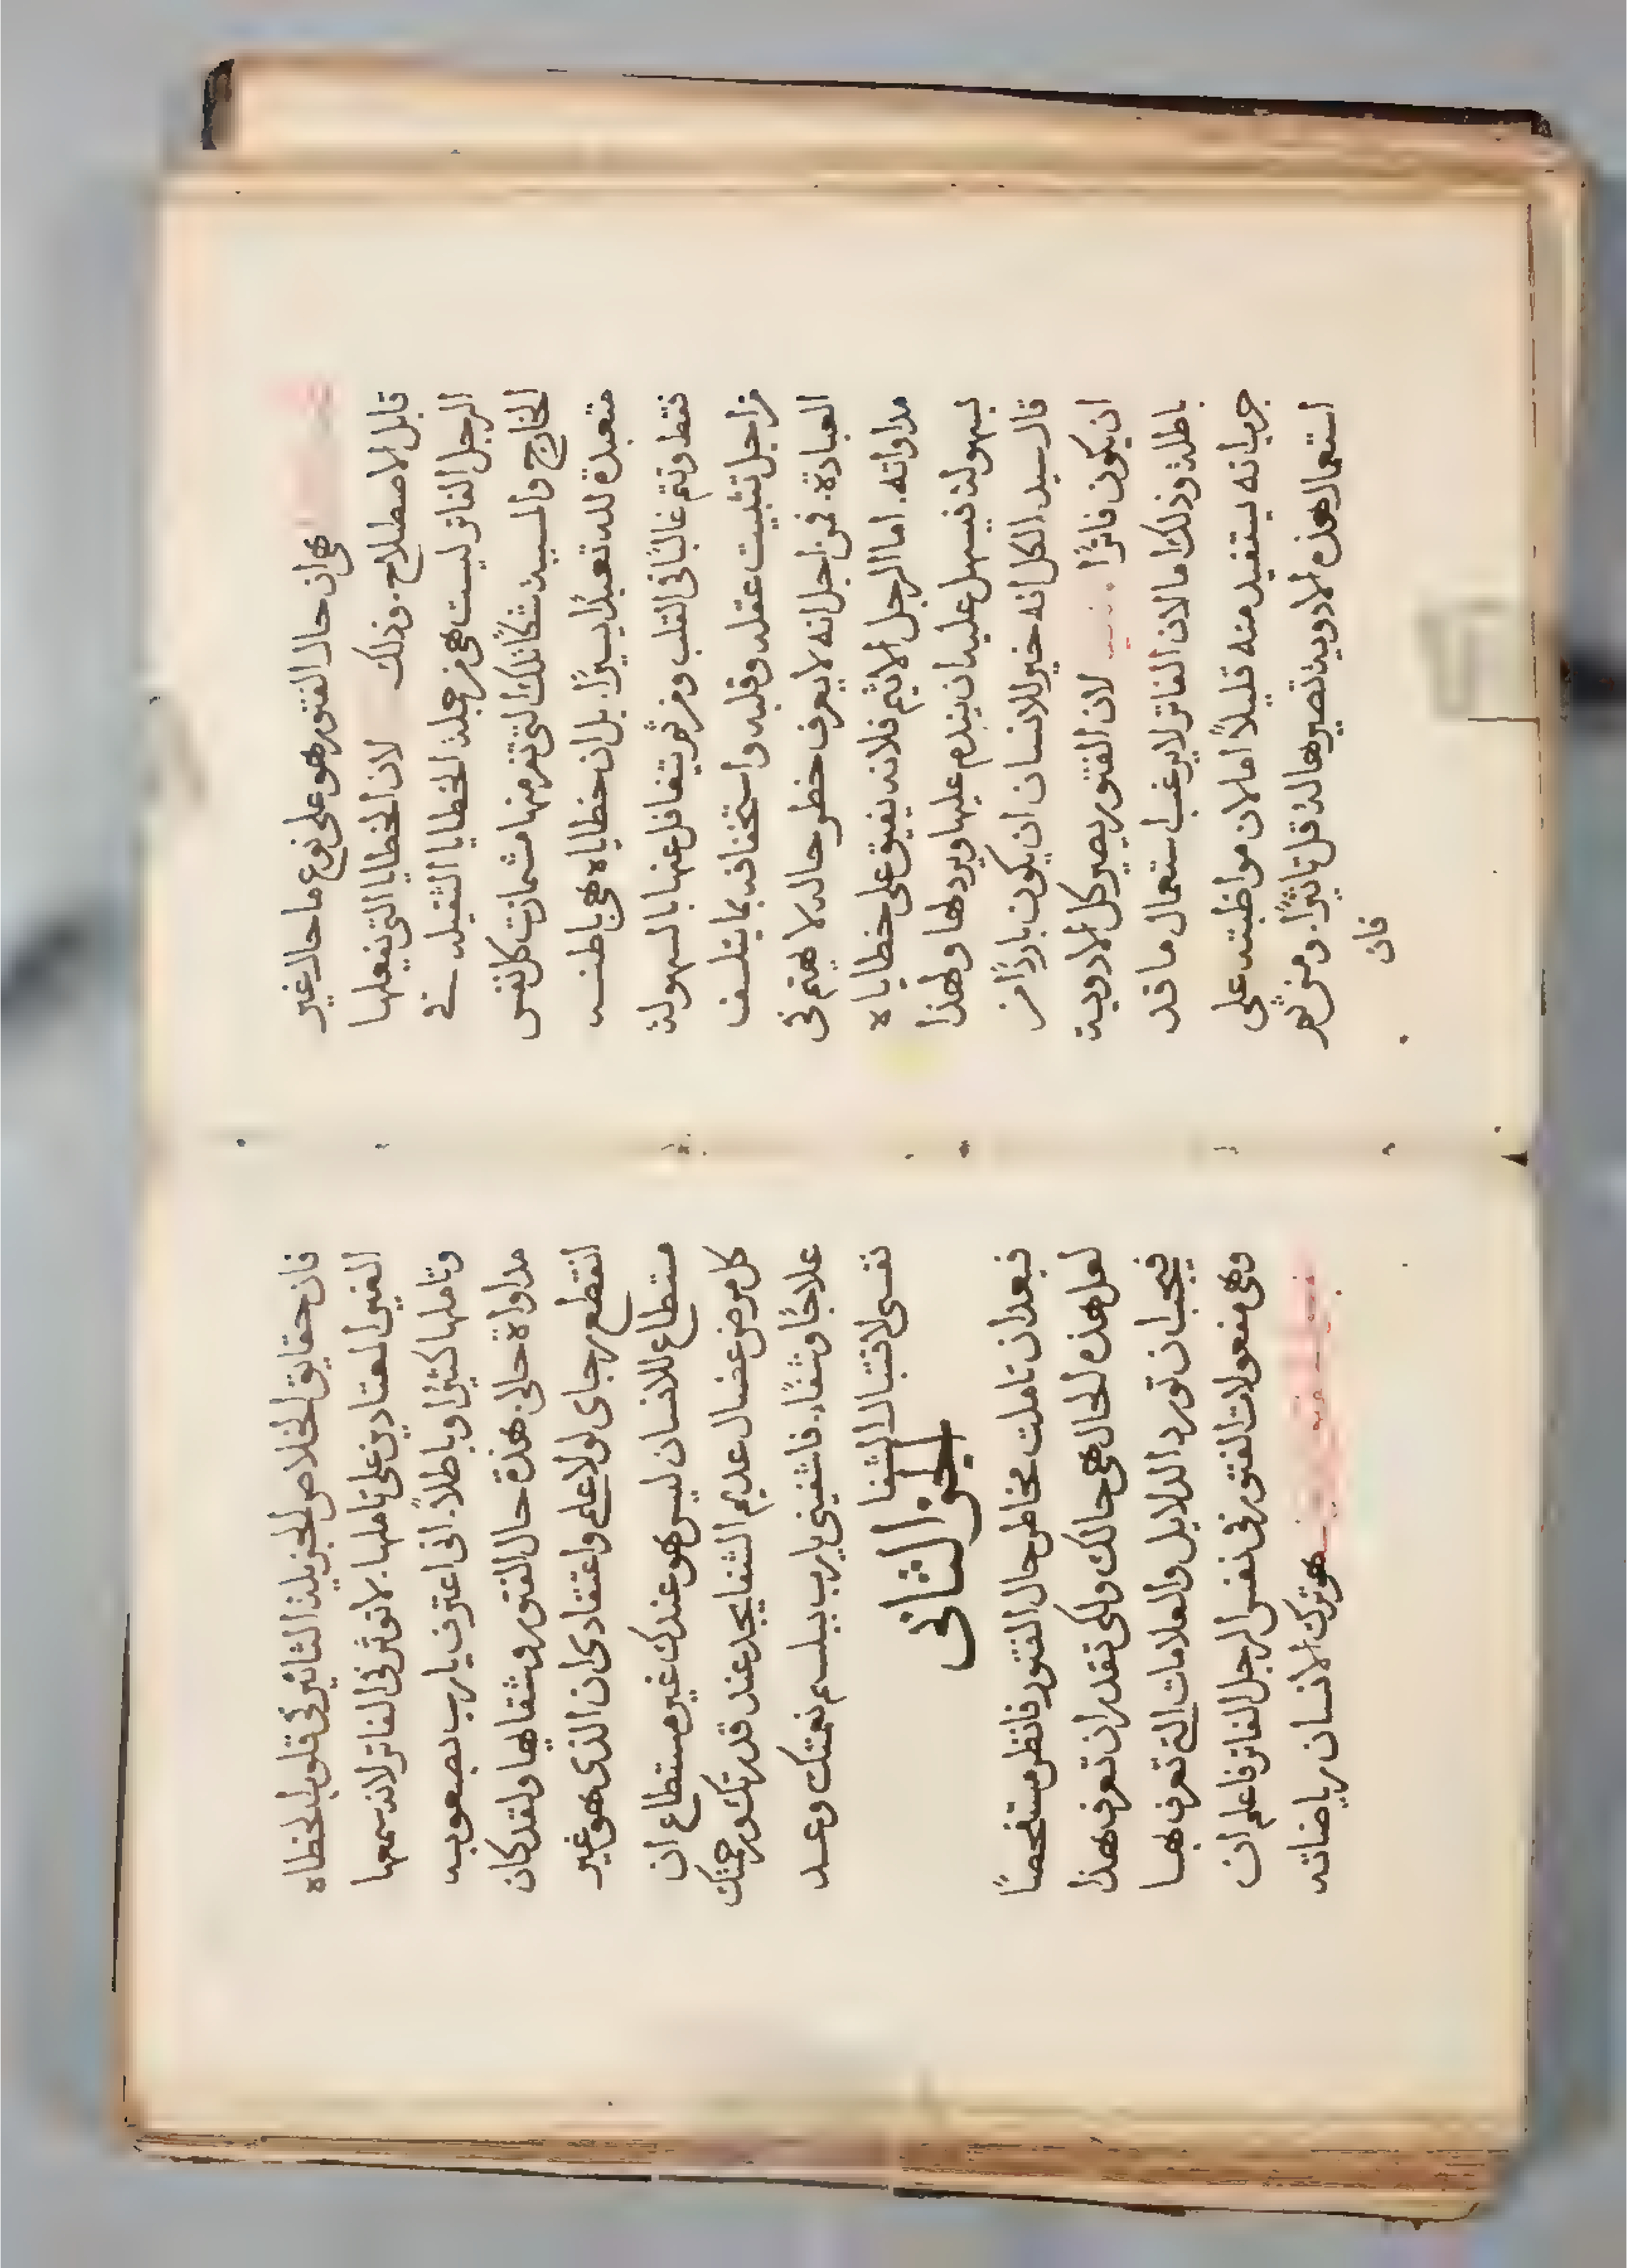 هى ان حال الفتور هو على نوع ما حال غير
قابل الاصطلاح. وذلك لان الخطايا التى تفعلها
الرجل الفاتر ليست هى من جملة الخطايا الثقيله فى
الخارج والمسببة شكًا تلك التى تقر منها مشمازت كل نفس
متعبدة لله تعبدًا يسيرًا. بل ان خطاياه هى باطنه
فقط وتتم غالبًا فى القلب ومن ثم يتغافل عنها بالسهولة
من اجل تثبيت عقله وقلبه واستخفافه بما يتلف
العبادة. فمن اجل انه لا يعرف خطر حاله لا يهتم فى
مداواته. اما الرجل الاثيم فلانه يفيق على خطاياه
بسهولة فيسهل عليه ان يندم عليها ويردها ولهذا
قال سيد الكل انه خير للانسان ان يكون باردًا من
ان يكون فاترًا. لان الفتور يصير كل الادوية
باطلة وذلك اما لان الفاتر لا يرغب استعمال ما قد
جرب انه يستفيد منه قليلاً اما لان مواظبته على
استعمال هذه الادوية تصيرها له اقل تاثيرًا. ومن ثم
فان
فان حقايق الخلاص الجزيلة التاثير فى قلوب الخطاه
الغير المعتادين على تاملها. لا توثر فى الفاتر لانه سمعها
وتاملها كثيرًا وباطلاً. انى اعترف يا رب بصعوبه
مداواة حالى. هذة حال الفتور وشفاها ولقد كان
انقطع رجاى لولا علمى واعتقادى ان الذى هو غير
مستطاع للانسان ليس هو عندك غير مستطاع ان
كل مرض عضال عديم الشفا يجد عند قدرتك ورحمتك
علاجًا وشفًا. فاشفينى يا رب ببلسم نعمتك وعد
نفسى لاقتبال الشفا
الجزء الثانى
فبعد ان تاملت مخاطر حال الفتور فانظر مستفحصًا
لعل هذه الحال هى حالك ولكى تقدر ان تعرف هذا
فيجب ان تورد الدلايل والعلامات التى تعرف بها
وهى مفعولات الفتور فى نفس الرجل الفاتر فاعلم ان
هو ترك الانسان رياضاته